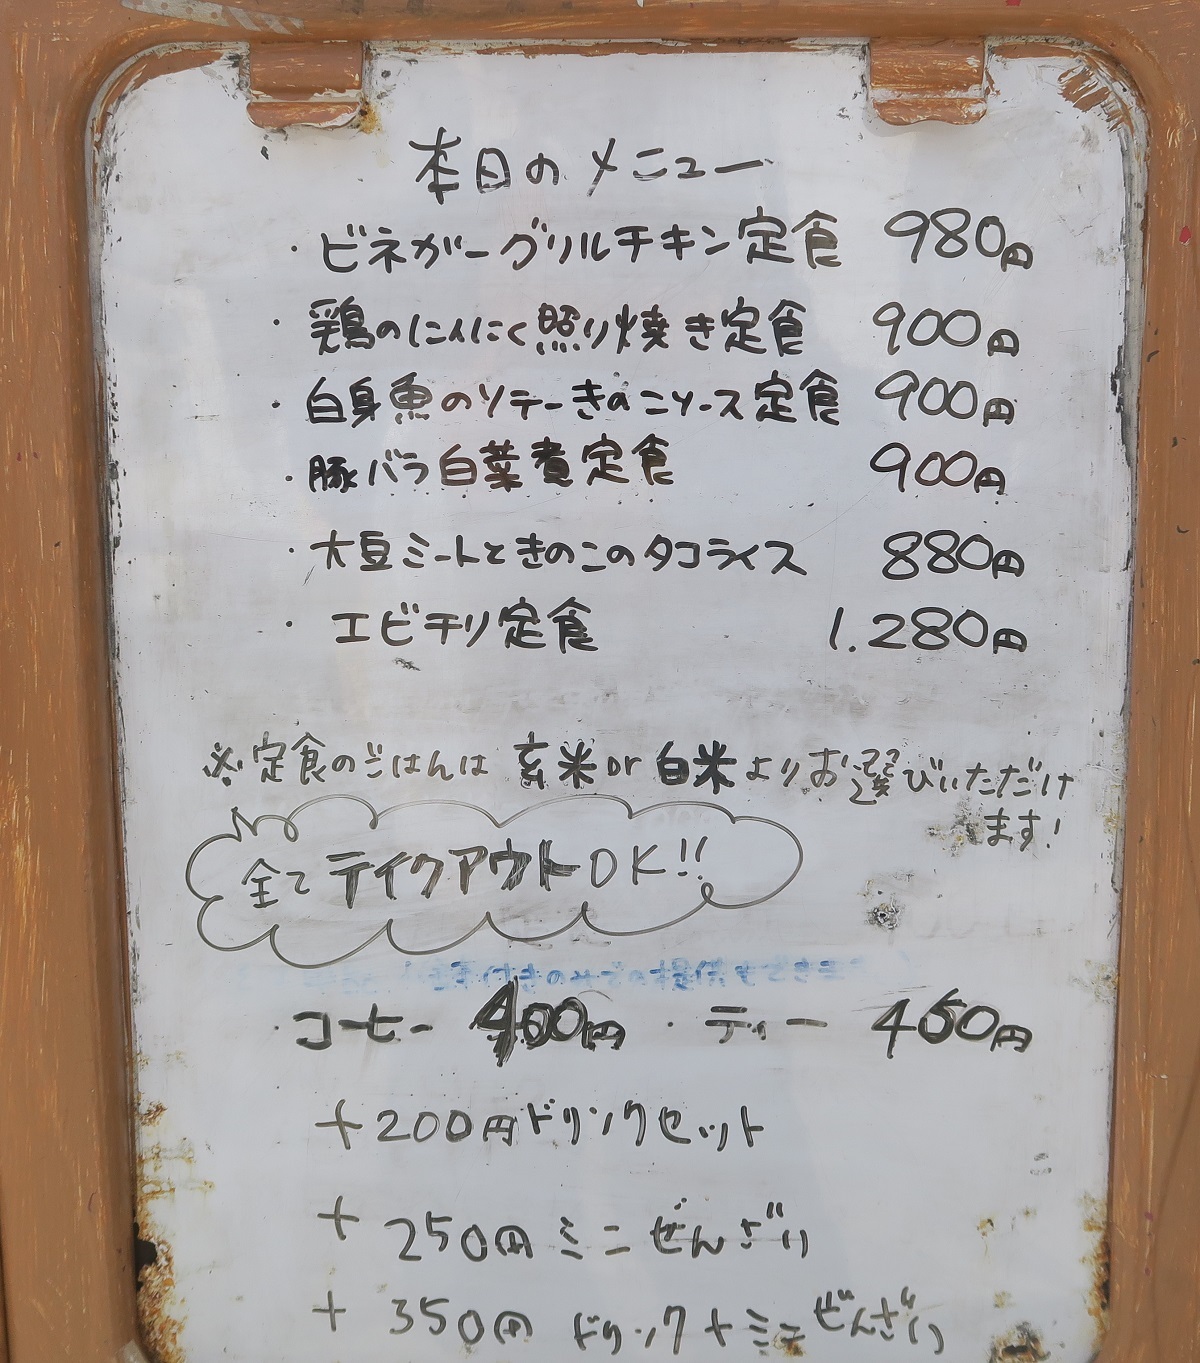 本日のメニュー
・ビネガーグリルチキン定食 980円
・鶏のにんにく照り焼き定食 900円
・白身魚のソテーきのこソース定食 900円
・豚バラ白菜煮定食 900円
・大豆ミートときのこのタコライス 880円
・エビチリ定食 1.280円
※定食のごはんは 玄米or白米よりお選びいただけ
ます!
全てテイクアウトOK!!
・コーヒー 400円 ・ティー 450円
+200円ドリンクセット
+250円ミニぜんざい
+350円ドリンク+ミニぜんざい